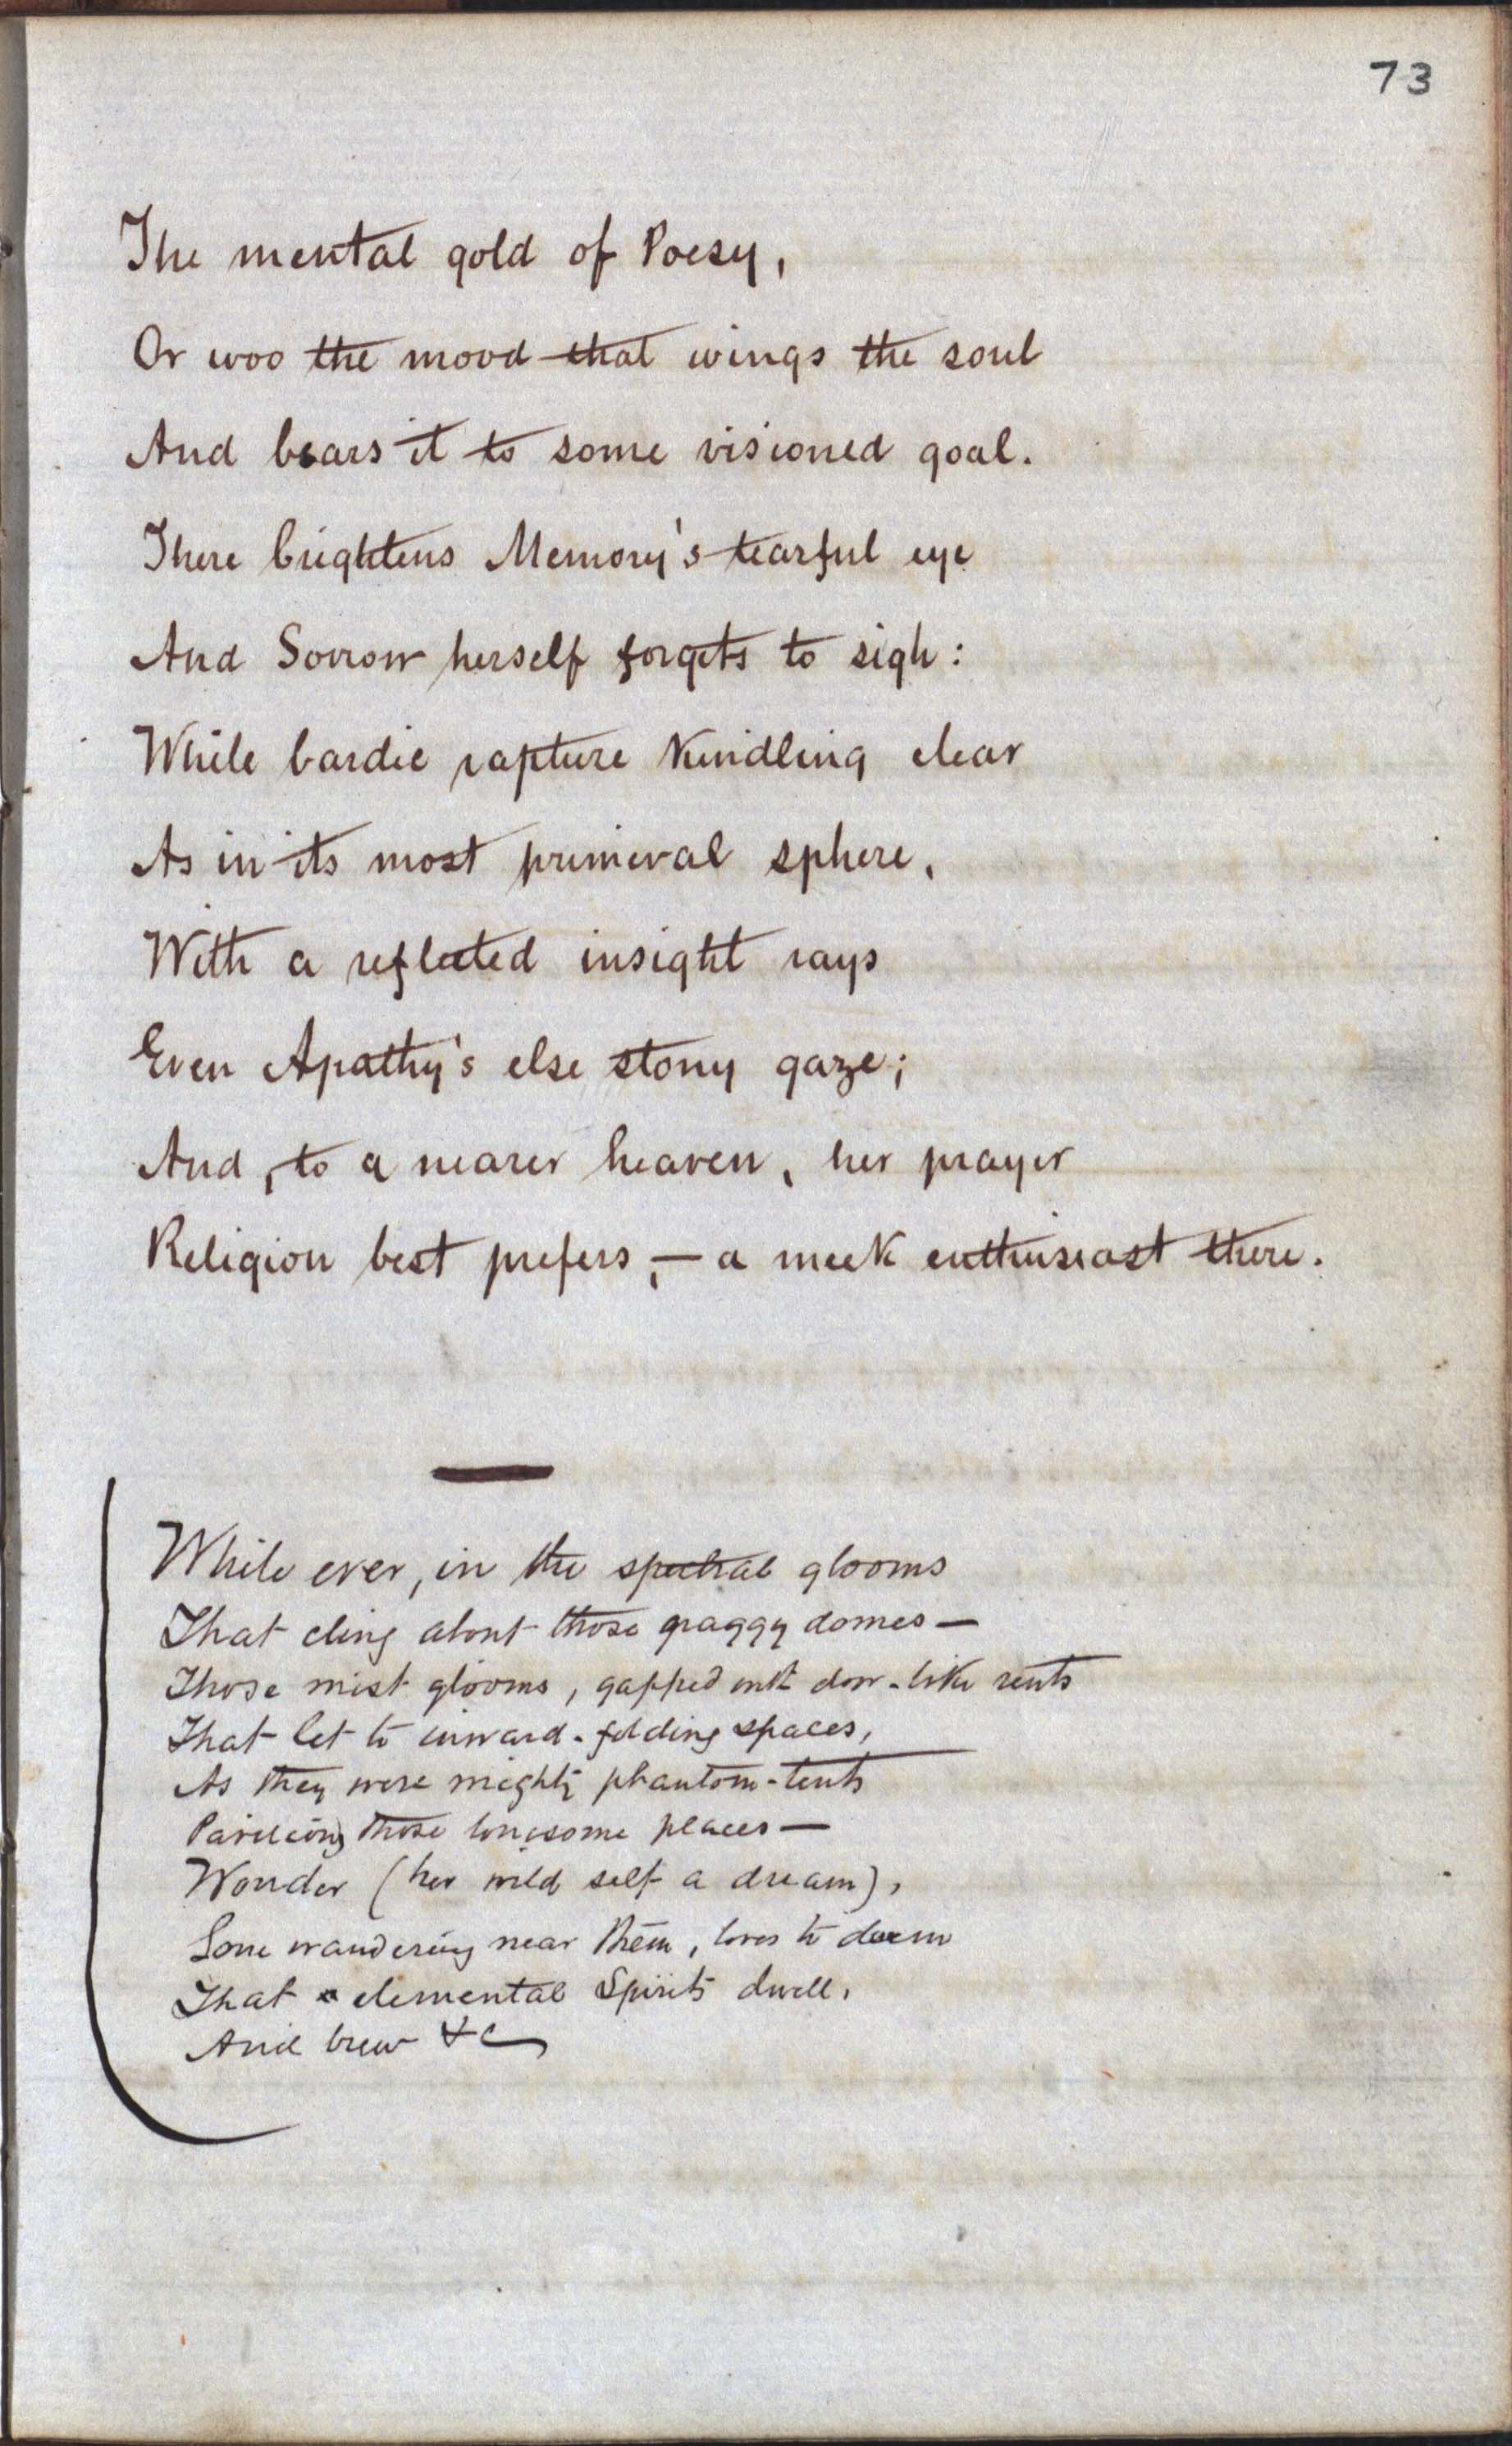 73
The mental gold of Poesy,
Or woo the mood that wings the soul
And bears it to some visioned goal.
There brightens Memory's tearful eye
And Sorrow herself forgets to sigh:
While bardic rapture kindling clear
As in its most primeval sphere,
With a reflected insight rays
Even Apathy's else stony gaze;
And, to a nearer heaven, her prayer
Religion best prefers, — a meek enthusiast there.
While ever, in the spectral glooms
That cling about those craggy domes —
Those mist glooms, gapped with door-like rents
That let to inward-folding spaces,
As they were mighty phantom-tents
Pavilioning those lonesome places —
Wonder (her wild self a dream),
Lone wandering near them, loves to deem
That elemental Spirits dwell,
And brew &c